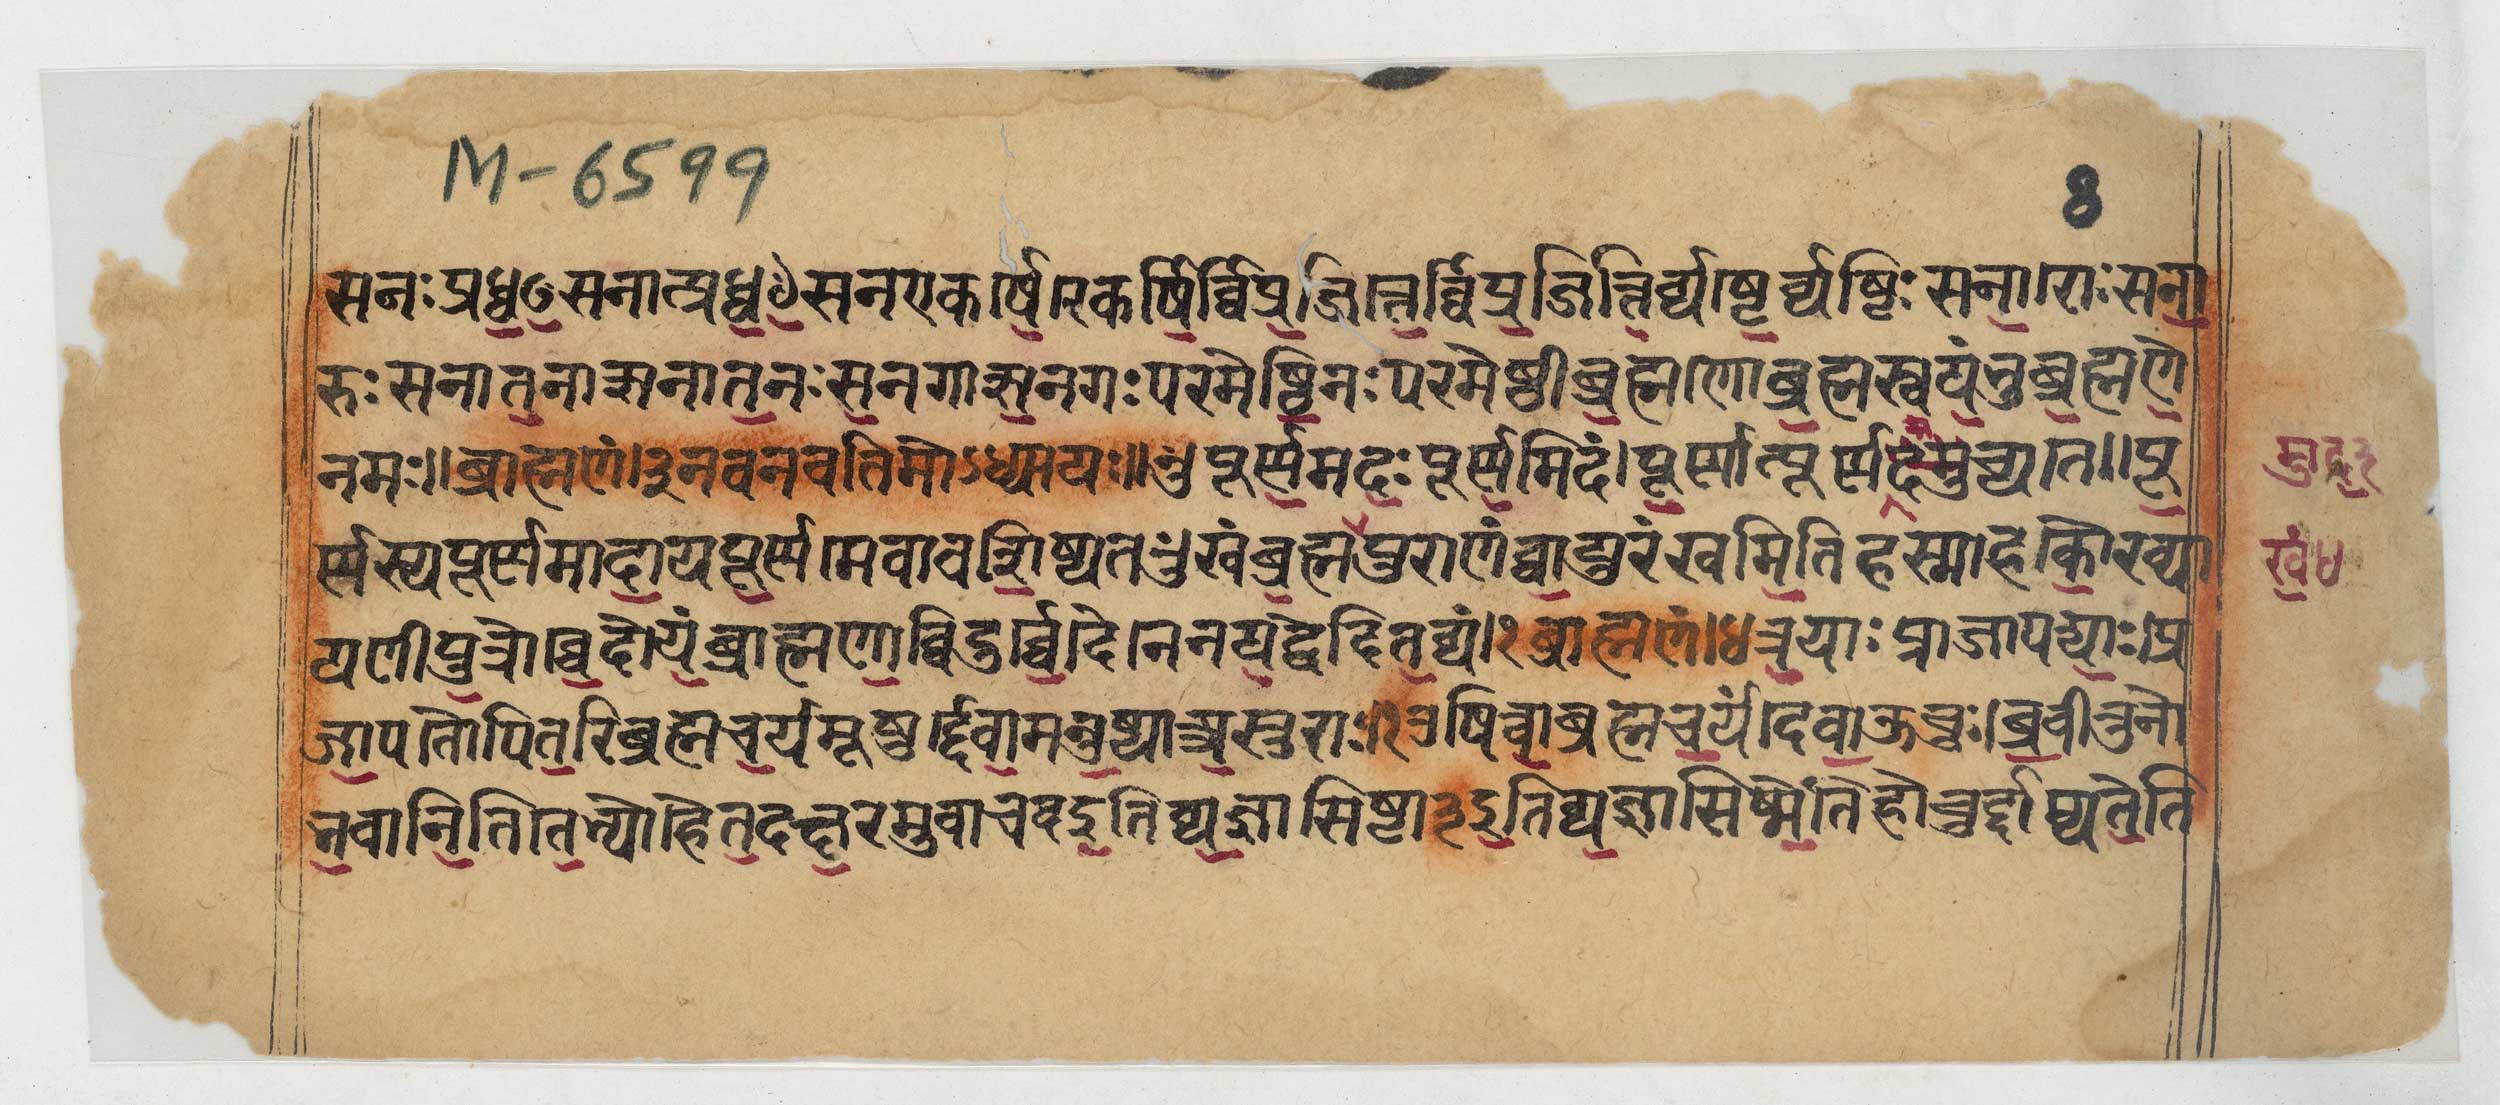 M-6599
8
सनः प्रध्वꣳसनात्प्रध्वꣳसन एकर्षेरेकर्षिर्व्विप्रजित्तेर्व्विप्रजित्तिर्व्यष्टेर्व्यष्टिः सनारोः सना
रुः सनातनात्सनातनः सनगात्सनगः परमेष्ठिनः परमेष्ठी ब्रह्मणो ब्रह्म स्वयंभु ब्रह्मणे
नमः॥ ब्राह्मणं।३ नवनवतिमोऽध्यायः॥ पूर्णमदः पूर्णमिदं पूर्णात्पूर्णमुदच्यते॥ पू
र्णस्य पूर्णमादाय पूर्णमेवावशिष्यते खं ब्रह्म पुराणं व्वायुरं खमिति ह स्माह कौरव्या
यणीपुत्रो व्वेदोऽयं ब्राह्मणा व्विदुर्व्वेदेनेन यद्वेदितव्यं।१ ब्राह्मणं।४ त्रयाः प्राजापत्याः। प्र
जापतौ पितरि ब्रह्मचर्यमूषुर्द्देवा मनुष्या असुराः।१ उषित्वा ब्रह्मचर्यं देवा ऊचुः ब्रवीतु नो
भवानिति तेभ्यो हैतदक्षरमुवाच द इति व्यज्ञासिष्टा३ इति व्यज्ञासिष्मेति होचुर्द्दाम्यतेति
खं४